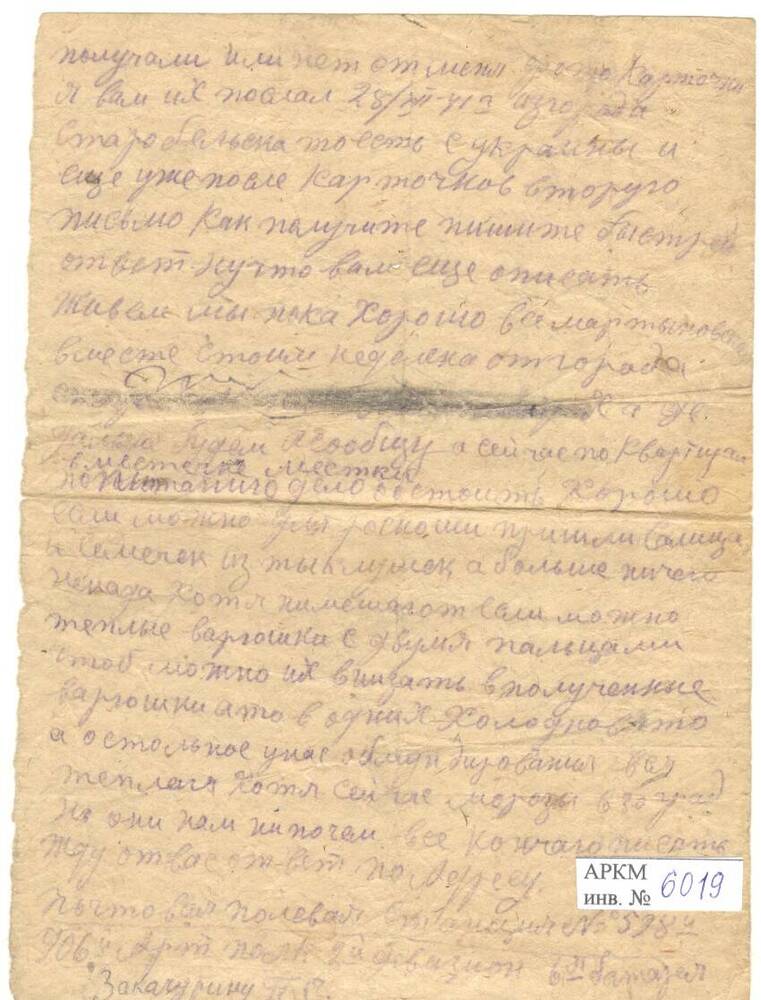 получали или нет от меня фото карточки
Я вам их послал 28/XII-41 из города
Старобельска тоесть с украины и
еще уже после карточков второго
письмо как получите пишите быстрей
ответ. ну что вам еще описать
живем мы пока хорошо все мартыновские
вместе стоим неделека от города
дальше будем я сообщу а сейчас по квартирам
в местечке местки
по питанию дело обстоить хорошо
если можно для роскоши пришли
и семечек из тыклушек, а больше ничего
ненада хотя нимешают если можно
теплые варюшки с двумя пальцами
чтоб можно их вкидать в полученные
варюшки ато в одних холодновато
а остольное унас обмундирования все
теплая хотя сейчас морозы
но они нам нипочем все кончаю писать
Жду от вас ответ по Адресу.
АРКМ
инв. № 6019
почтовая полевая Станция № 598
906й Арт полк 2й девизион 6й батарея
Закачурину